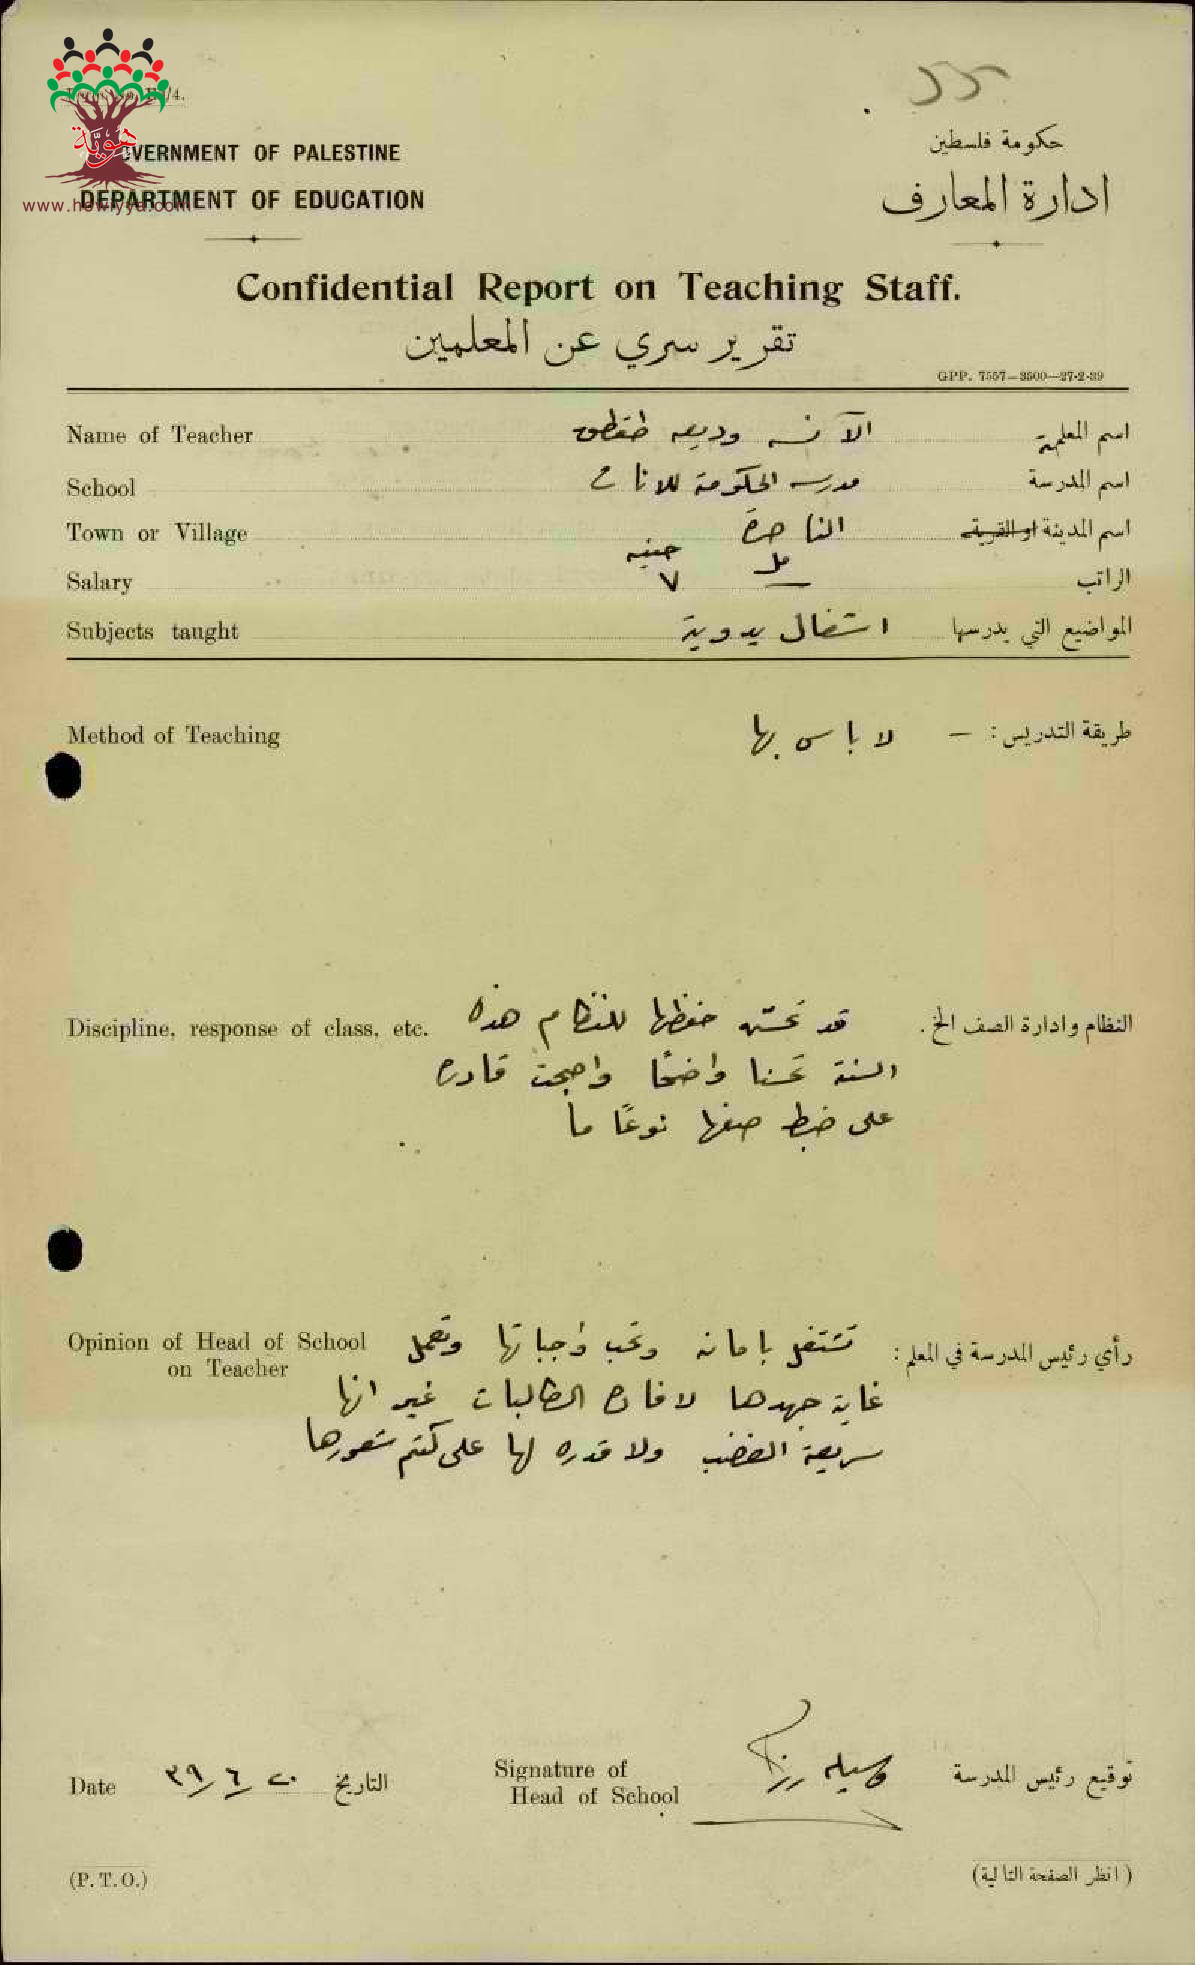 هوية
www.howiyya.com
GOVERNMENT OF PALESTINE
DEPARTMENT OF EDUCATION
حكومة فلسطين
ادارة المعارف
Confidential Report on Teaching Staff.
تقرير سري عن المعلمين
GPP. 7557—3500—27-2-39
Name of Teacher الآنسه وديعه طقطق اسم المعلمة
School مدرسه الحكومة للاناث اسم المدرسة
Town or Village الناصرة اسم المدينة او القرية
جنيه مل
Salary ٧ — الراتب
Subjects taught اشغال يدوية المواضيع التي يدرسها
Method of Teaching لا باس بها طريقة التدريس : —
Discipline, response of class, etc. قد تحسّن حفظها للنظام هذه النظام وادارة الصف الخ.
السنة تحسنا واضحًا واصبحت قادره
على ضبط صفها نوعًا ما
Opinion of Head of School تشتغل بامانه وتحب واجباتها وتعمل رأي رئيس المدرسة في المعلم :
on Teacher
غاية جهدها لافادة الطالبات غير انها
سريعة الغضب ولا قدره لها على كتم شعورها
Signature of وسيله توقيع رئيس المدرسة
Head of School
Date ٢٠/٦/٣٩ التاريخ
(P. T. O.) ( انظر الصفحة التالية )